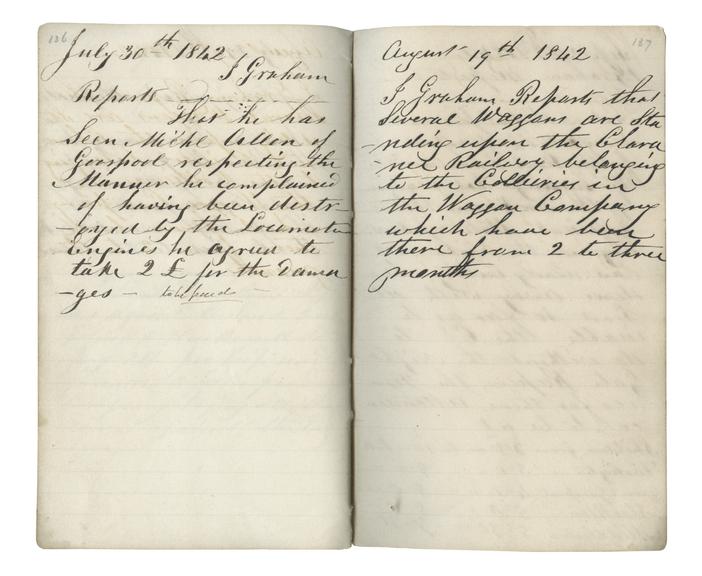 136
July 30th 1842
I Graham
Reports
That he has
Seen Michl Allon of
Gosspool respecting the
Manner he complained
of having been destr-
-oyed by the Locomotive
Engines he agreed to
take 2 £ for the dama
-ges - to be paid -
137
August 19th 1842
I Graham Reports that
Several Waggans are Sta
-nding upon the Clara
-nce Railway belonging
to the Collieries in
the Waggan Company
which have been
there from 2 to three
months